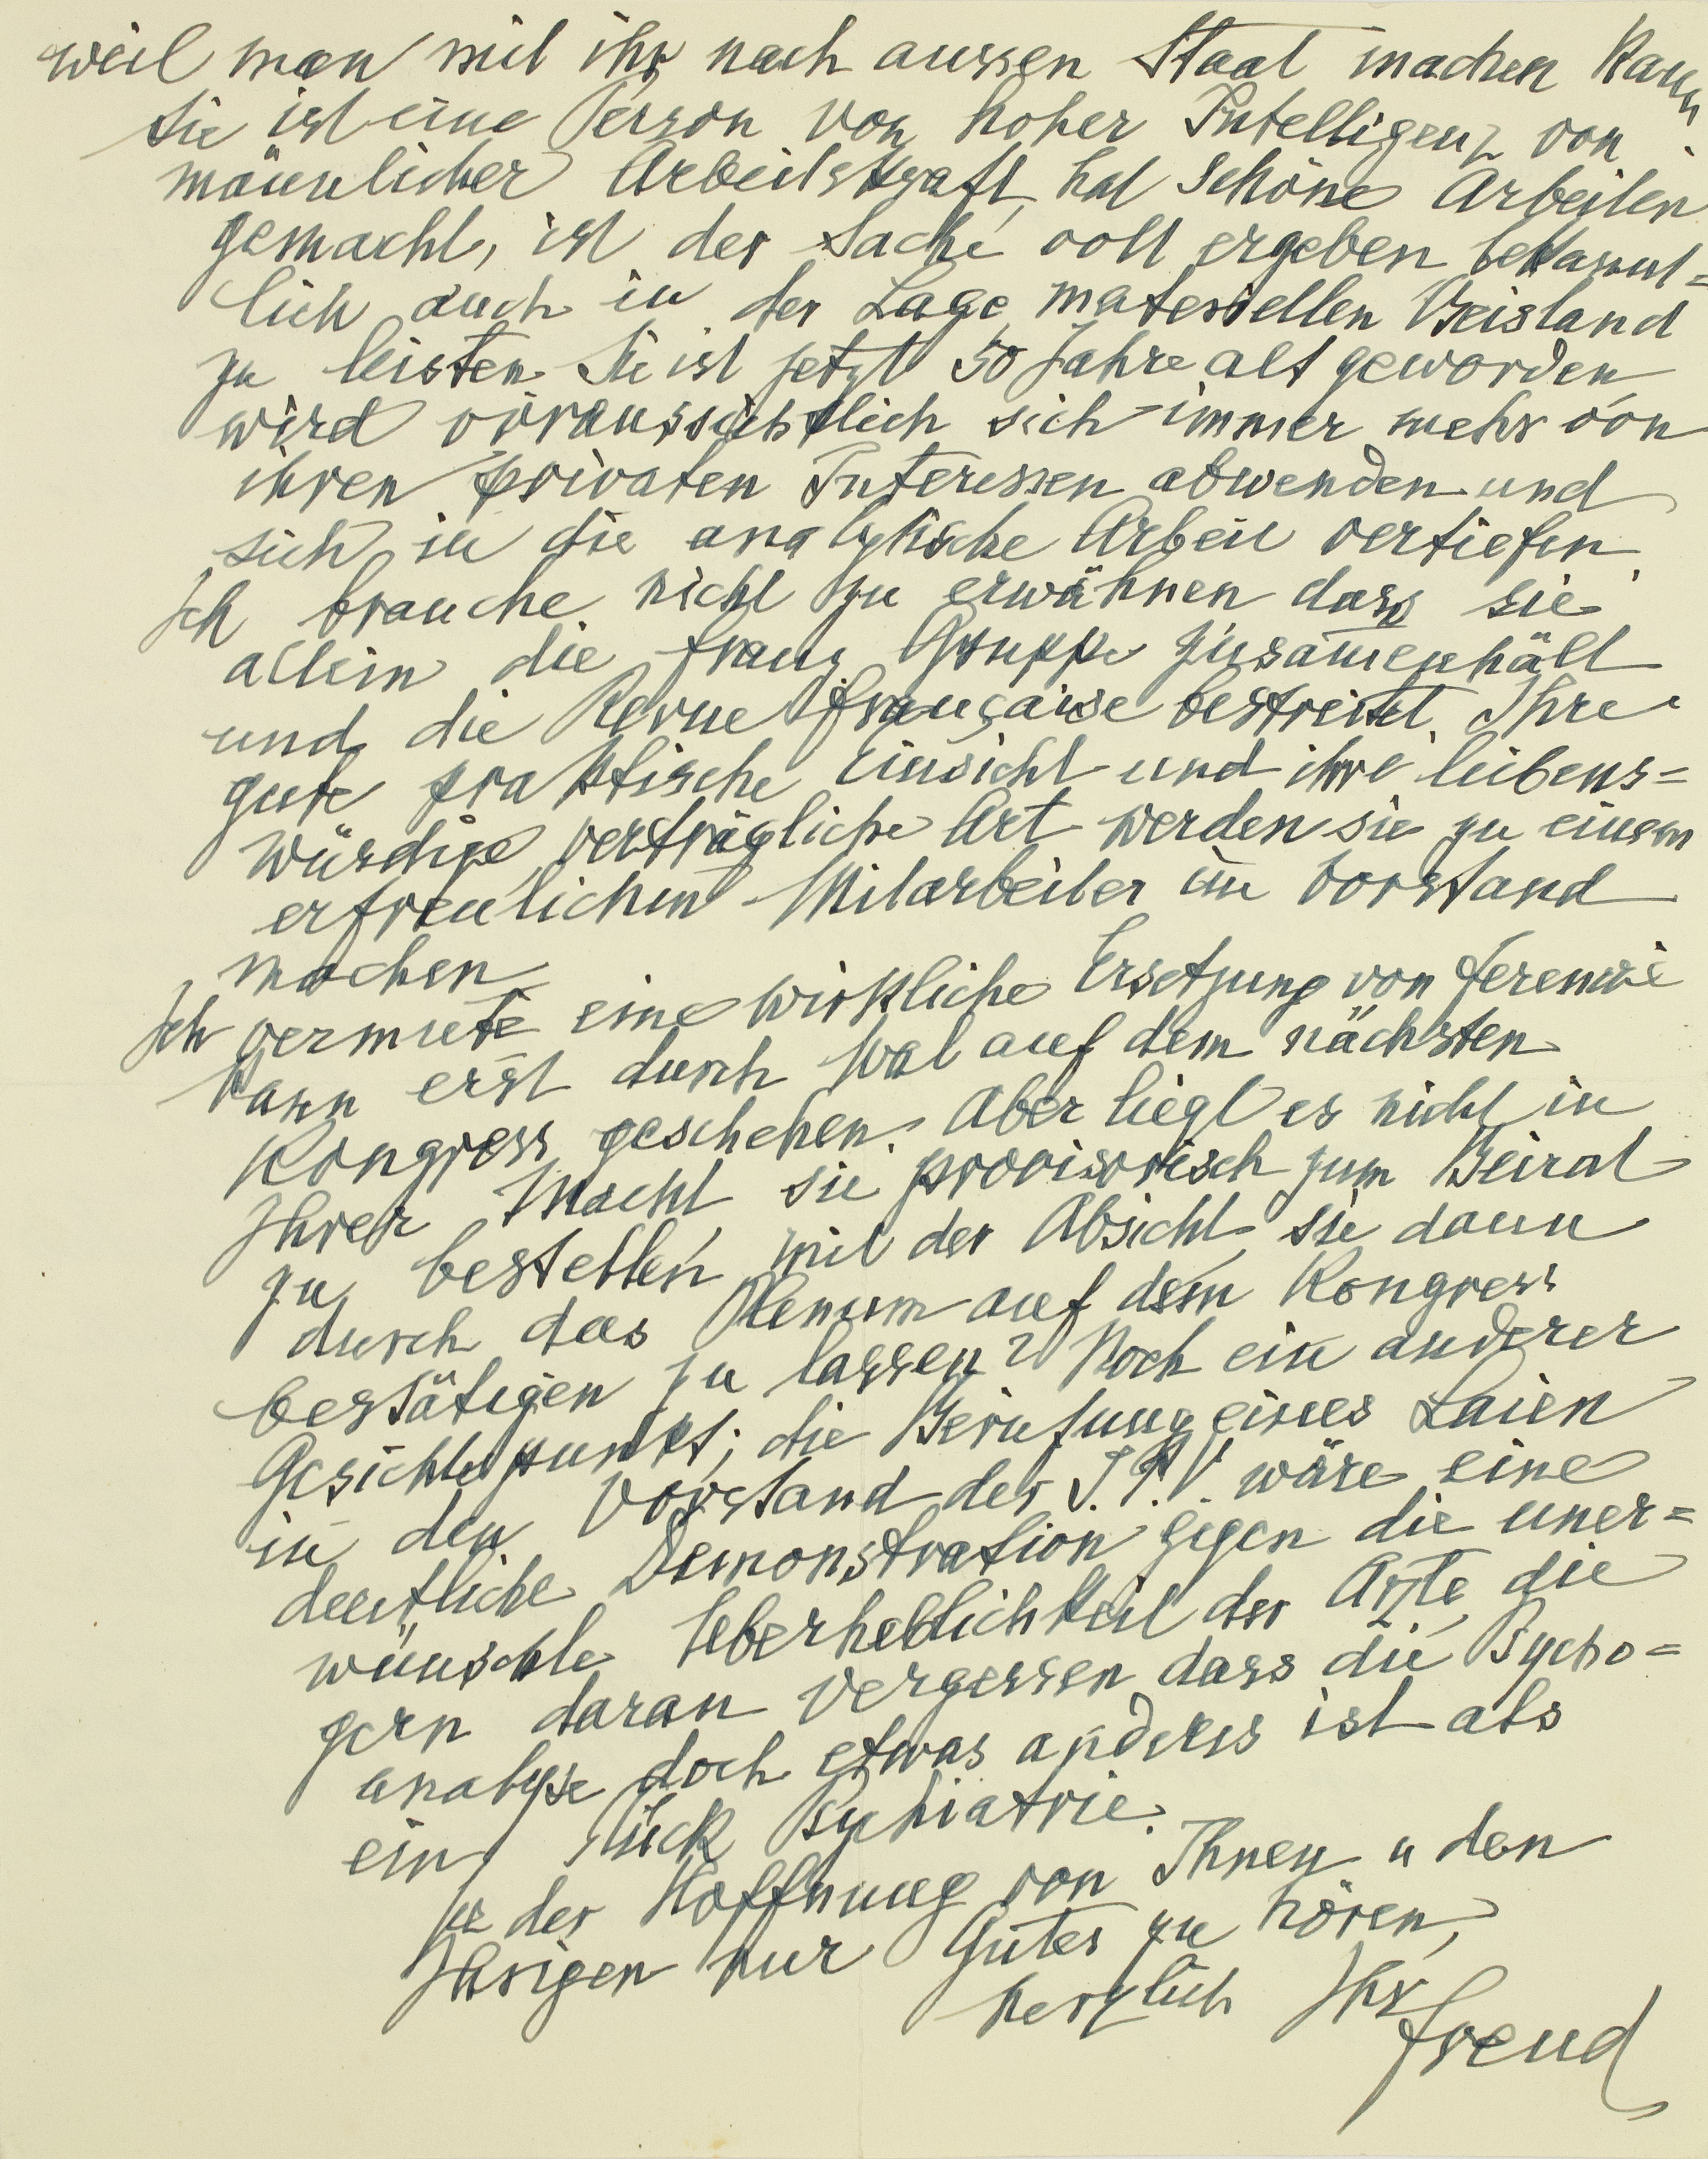 weil man mit ihr nach aussen Staat machen kann
Sie ist eine Person von hoher Intelligenz, von
männlicher Arbeitskraft, hat schöne Arbeiten
gemacht, ist der Sache voll ergeben bekannt=
lich auch in der Lage, materiellen Beistand
zu leisten. Sie ist jetzt 50 Jahre alt geworden,
wird voraussichtlich sich immer mehr von
ihren privaten Interessen abwenden und
sich in die analytische Arbeit vertiefen.
Ich brauche nicht zu erwähnen dass sie
allein die franz Gruppe zusam̄enhält
und die Revue française bestreitet. Ihre
gute praktische Einsicht und ihre leibens=
würdige, verträgliche Art werden sie zu einem
erfreulichen Mitarbeiter im Vorstand
machen
Ich vermute eine wirkliche Ersetzung von Ferenczi
kann erst durch Wal auf dem nächsten
Kongress geschehen. Aber liegt es nicht in
Ihrer Macht sie provisorisch zum Beirat
zu bestellen, mit der Absicht, sie dann
durch das Plenum auf dem Kongress
bestätigen zu lassen? Noch ein anderer
Gesichtspunkt; die Berufung eines Laien
in den Vorstand der I.P.V. wäre eine
deutliche Demonstration gegen die uner=
wünschte Ueberheblichkeit der Ärzte, die
gern daran vergessen dass die Psycho=
analyse doch etwas anderes ist als
ein Stück Psychiatrie.
In der Hoffnung von Ihnen u den
Ihrigen nur Gutes zu hören,
herzlich Ihr
Freud